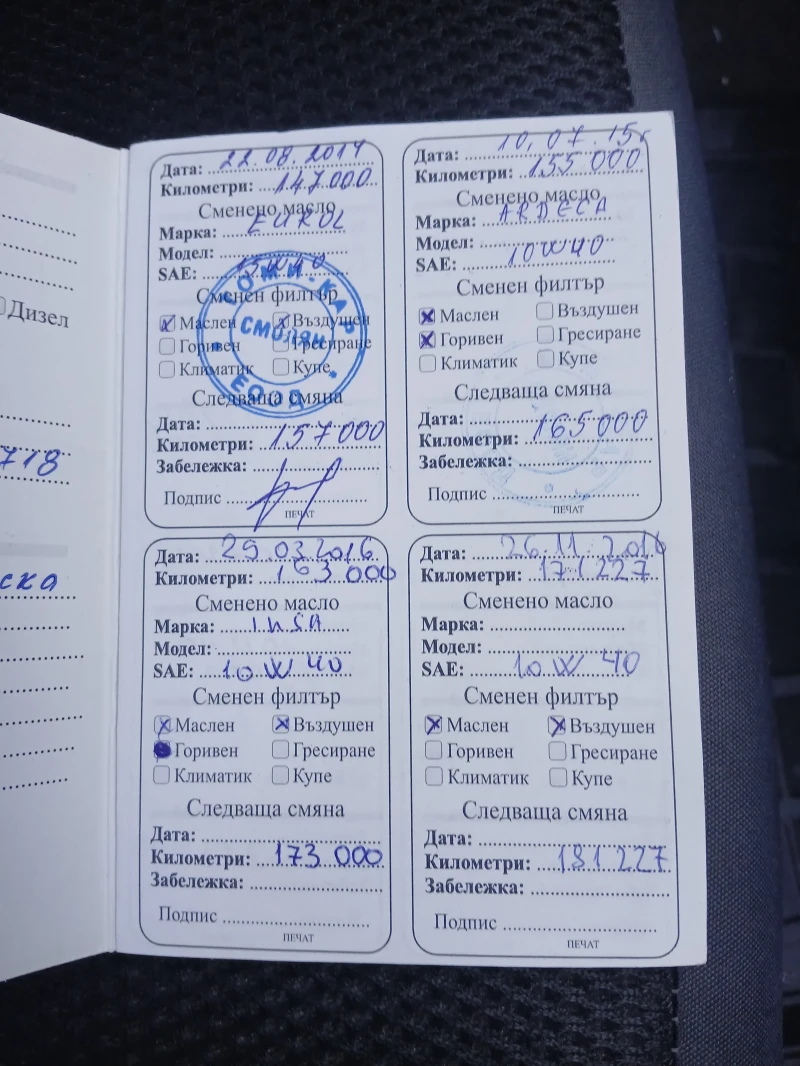 Дизел
718
ска
Дата: 22.08.2014
Километри: 147.000
Сменено масло
Марка: EUROL
Модел:
SAE:
Сменен филтър
Маслен Въздушен
Горивен Гресиране
Климатик Купе
СОМИ-КАР
СМОЛЯН
ЕООД
Следваща смяна
Дата:
Километри: 157000
Забележка:
Подпис
ПЕЧАТ
Дата: 10,07.15г
Километри: 155 000
Сменено масло
Марка: ARDECA
Модел:
SAE: 10W40
Сменен филтър
Маслен Въздушен
Горивен Гресиране
Климатик Купе
Следваща смяна
Дата:
Километри: 165000
Забележка:
Подпис
ПЕЧАТ
Дата: 25.03.2016
Километри: 163 000
Сменено масло
Марка: INSA
Модел:
SAE: 10 W 40
Сменен филтър
Маслен Въздушен
Горивен Гресиране
Климатик Купе
Следваща смяна
Дата:
Километри: 173 000
Забележка:
Подпис
ПЕЧАТ
Дата: 26.11.2016
Километри: 171227
Сменено масло
Марка:
Модел:
SAE: 10 W 40
Сменен филтър
Маслен Въздушен
Горивен Гресиране
Климатик Купе
Следваща смяна
Дата:
Километри: 181227
Забележка:
Подпис
ПЕЧАТ